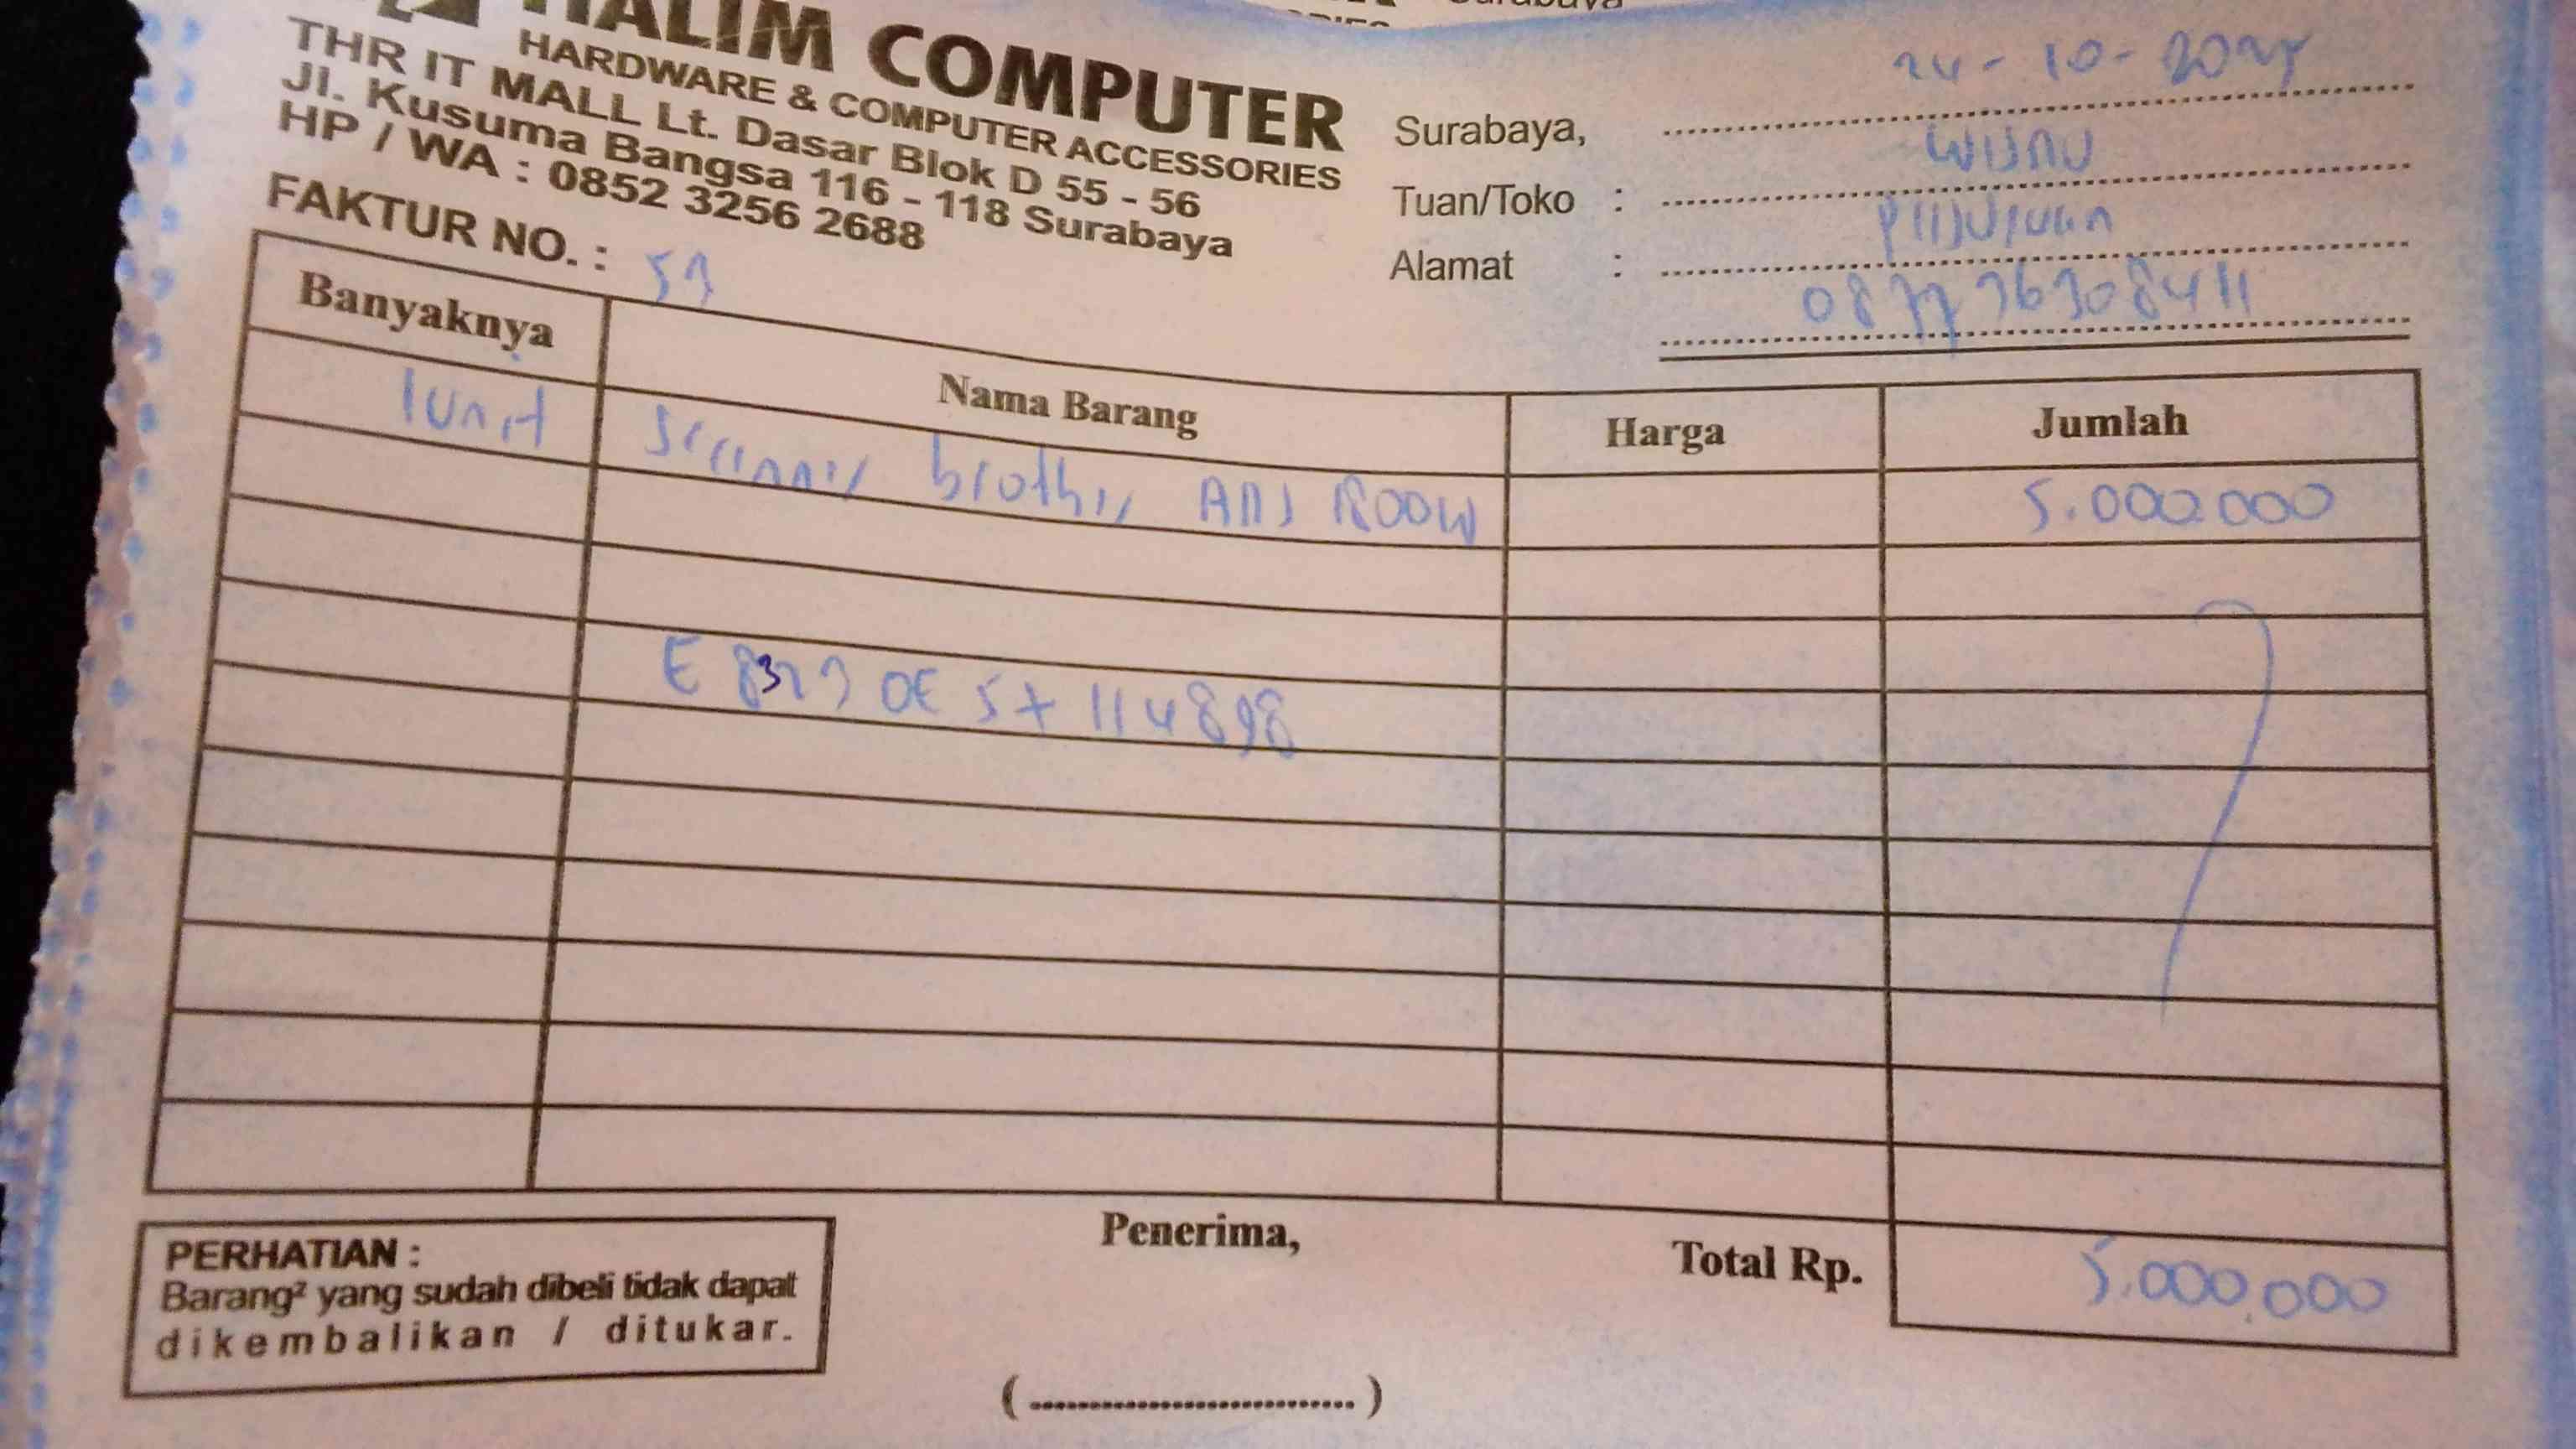 HALIM COMPUTER
HARDWARE & COMPUTER ACCESSORIES
THR IT MALL Lt. Dasar Blok D 55 - 56
Jl. Kusuma Bangsa 116 - 118 Surabaya
HP / WA : 0852 3256 2688
FAKTUR NO. :
Surabaya, 24 - 10 - 2025
Tuan/Toko :
Alamat :
Banyaknya Nama Barang Harga Jumlah
1 unit scanner brother ADS 1800W 5.000.000
Total Rp. 5.000.000
PERHATIAN :
Barang² yang sudah dibeli tidak dapat
dikembalikan / ditukar.
Penerima,
(..............................)